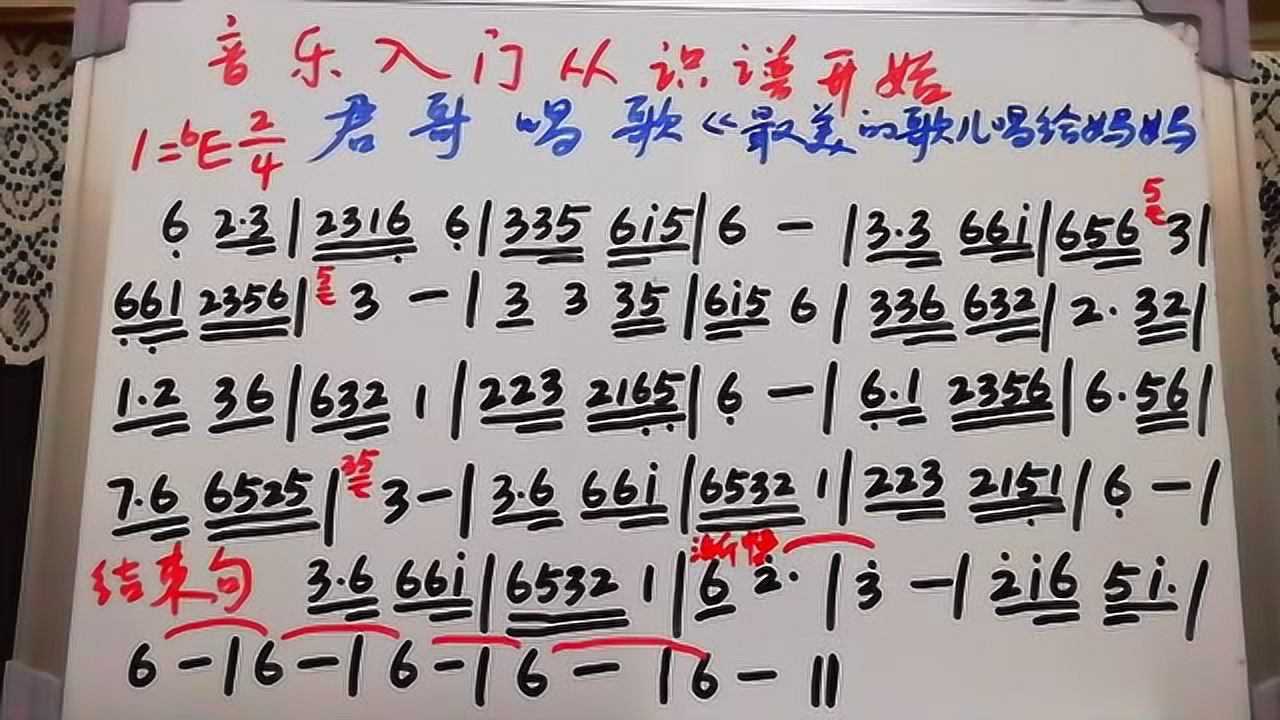 音乐入门从识谱开始
1=♭E 2/4 君哥唱歌《最美的歌儿唱给妈妈
6̣ 2·3 | 2316̣ 6̣ | 335 6i5 | 6 — | 3·3 66i | 656 ⁵3 |
6̣6̣1 2356 | ⁵3 — | 3 3 35 | 6i5 6 | 336 632 | 2· 32 |
1·2 36 | 632 1 | 223 216̣5̣ | 6̣ — | 6̣·1 2356 | 6·56 |
7·6 6525 | ³⁵3 — | 3·6 66i | 6532 1 | 223 215̣1 | 6̣ — |
渐慢
结束句 3·6 66i | 6532 1 | 6 2̇· | 3̇ — | 2̇i6 5i· |
6 — | 6 — | 6 — | 6 — | 6 — ‖